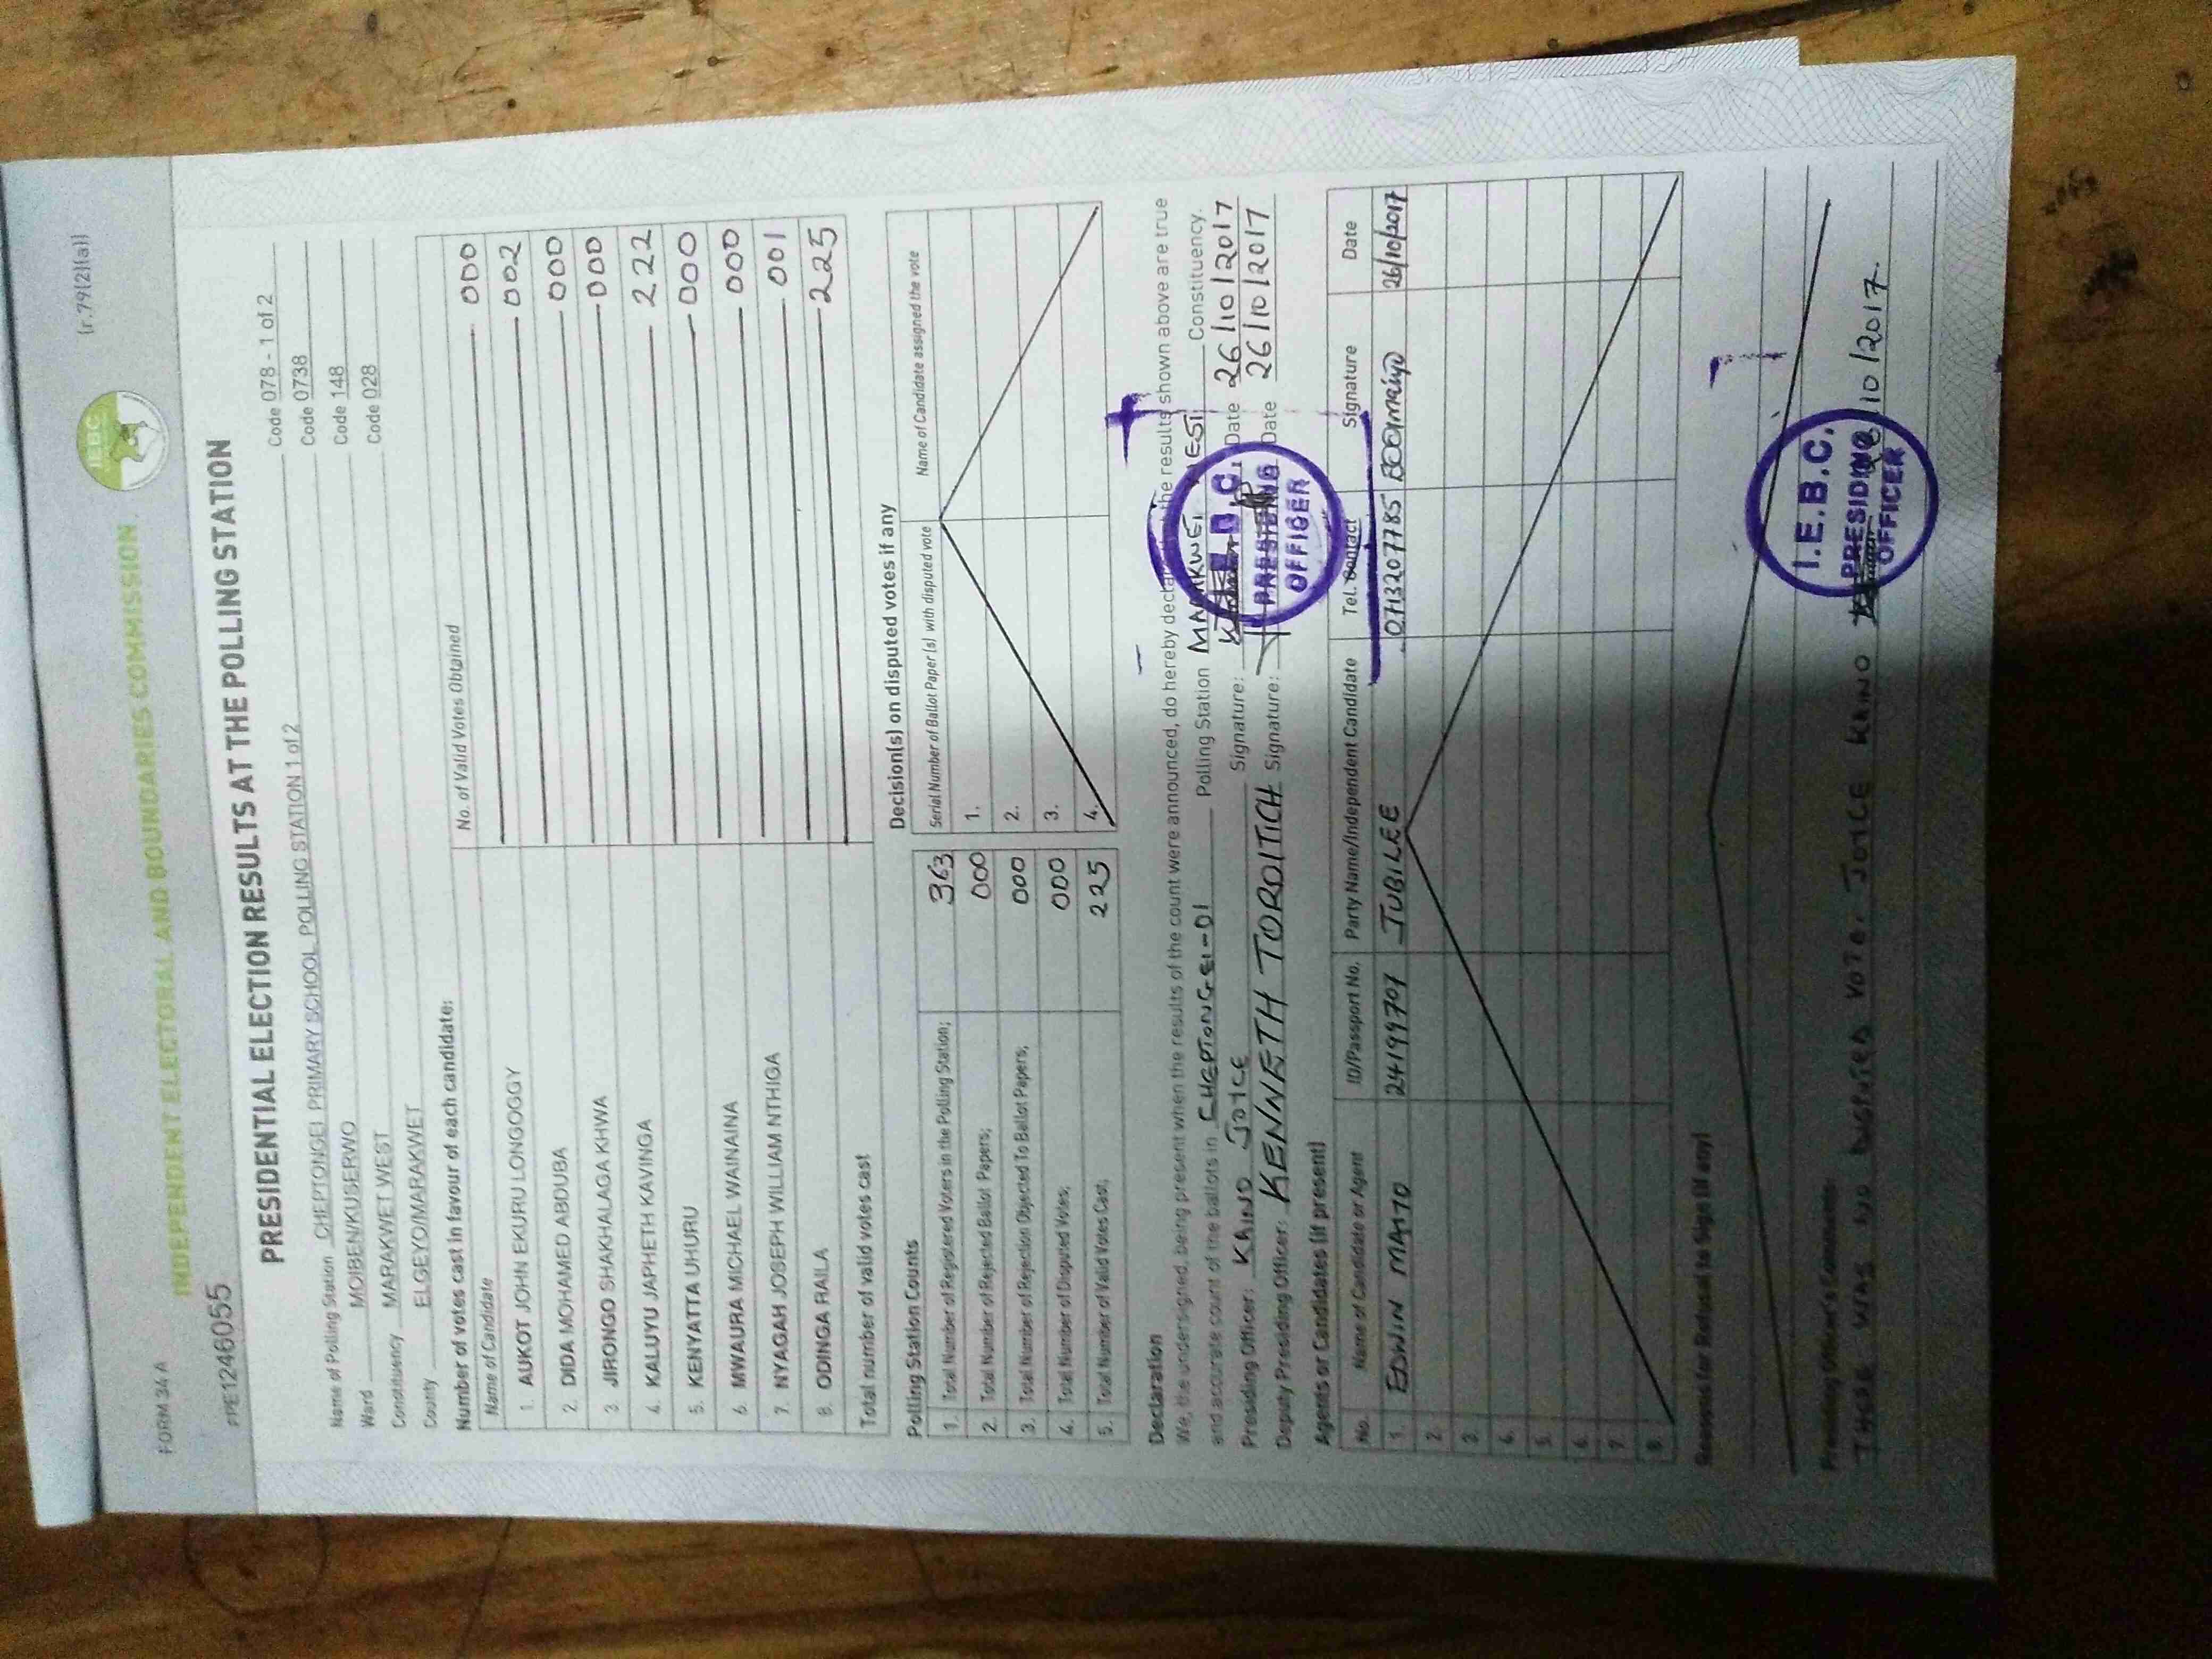 FORM 34 A
(r.79(2)(a))
IEBC
INDEPENDENT ELECTORAL AND BOUNDARIES COMMISSION
#PE1246055
PRESIDENTIAL ELECTION RESULTS AT THE POLLING STATION
Name of Polling Station CHEPTONGEI PRIMARY SCHOOL POLLING STATION 1 of 2 Code 078 - 1 of 2
Ward MOIBEN/KUSERWO Code 0738
Constituency MARAKWET WEST Code 148
County ELGEYO/MARAKWET Code 028
Number of votes cast in favour of each candidate:
Name of Candidate No. of Valid Votes Obtained
1. AUKOT JOHN EKURU LONGOGGY 000
2. DIDA MOHAMED ABDUBA 002
3. JIRONGO SHAKHALAGA KHWA 000
4. KALUYU JAPHETH KAVINGA 000
5. KENYATTA UHURU 222
6. MWAURA MICHAEL WAINAINA 000
7. NYAGAH JOSEPH WILLIAM NTHIGA 000
8. ODINGA RAILA 001
Total number of valid votes cast 225
Polling Station Counts
1. Total Number of Registered Voters in the Polling Station; 363
2. Total Number of Rejected Ballot Papers; 000
3. Total Number of Rejection Objected To Ballot Papers; 000
4. Total Number of Disputed Votes; 000
5. Total Number of Valid Votes Cast; 225
Decision(s) on disputed votes if any
Serial Number of Ballot Paper (s) with disputed vote Name of Candidate assigned the vote
1.
2.
3.
4.
Declaration
We, the undersigned, being present when the results of the count were announced, do hereby declare the results shown above are true
and accurate count of the ballots in CHEPTONGEI-01 Polling Station Constituency.
Presiding Officer: KAINO JOYCE Signature: Date 26/10/2017
Deputy Presiding Officer: KENNETH TOROITICH Signature: Date 26/10/2017
I.E.B.C. PRESIDING OFFICER
Agents or Candidates (if present)
No. Name of Candidate or Agent ID/Passport No. Party Name/Independent Candidate Tel. Contact Signature Date
1. EDWIN MAIYO 24199707 JUBILEE 0713207785 26/10/2017
2.
3.
4.
5.
6.
7.
8.
Reasons for Refusal to Sign (if any)
Presiding Officer's Comments
THERE WAS NO DISPUTED VOTE. JOYCE KAINO /10/2017.
I.E.B.C. PRESIDING OFFICER